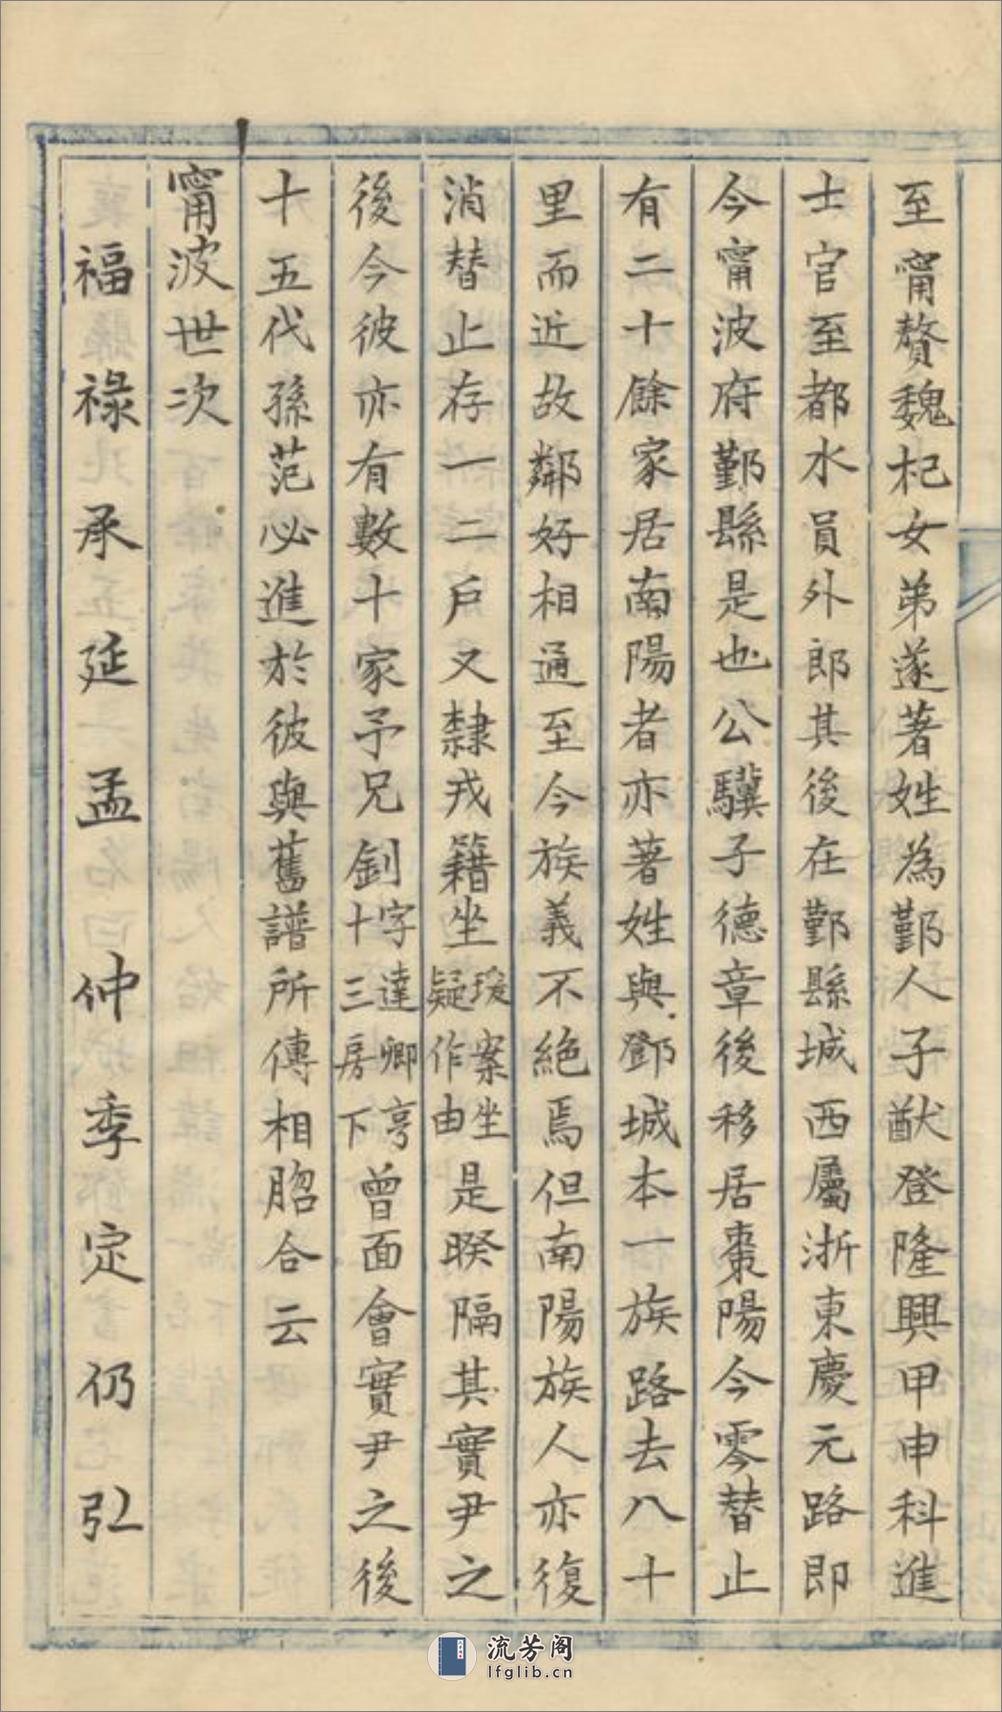 至甯贅魏杞女弟遂著姓為鄞人子猷登隆興甲申科進
士官至都水員外郎其後在鄞縣城西屬浙東慶元路即
今甯波府鄞縣是也公驥子德章後移居棗陽今零替止
有二十餘家居南陽者亦著姓與鄧城本一族路去八十
里而近故鄰好相通至今族義不絕焉但南陽族人亦復
消替止存一二戶又隸戎籍坐瑗案坐疑作由是暌隔其實尹之
後今彼亦有數十家予兄釗字達卿亨十三房下曾面會實尹之後
十五代孫范必進於彼與舊譜所傳相脗合云
甯波世次
福祿承延孟仲季定仍弘
流芳阁
lfglib.cn